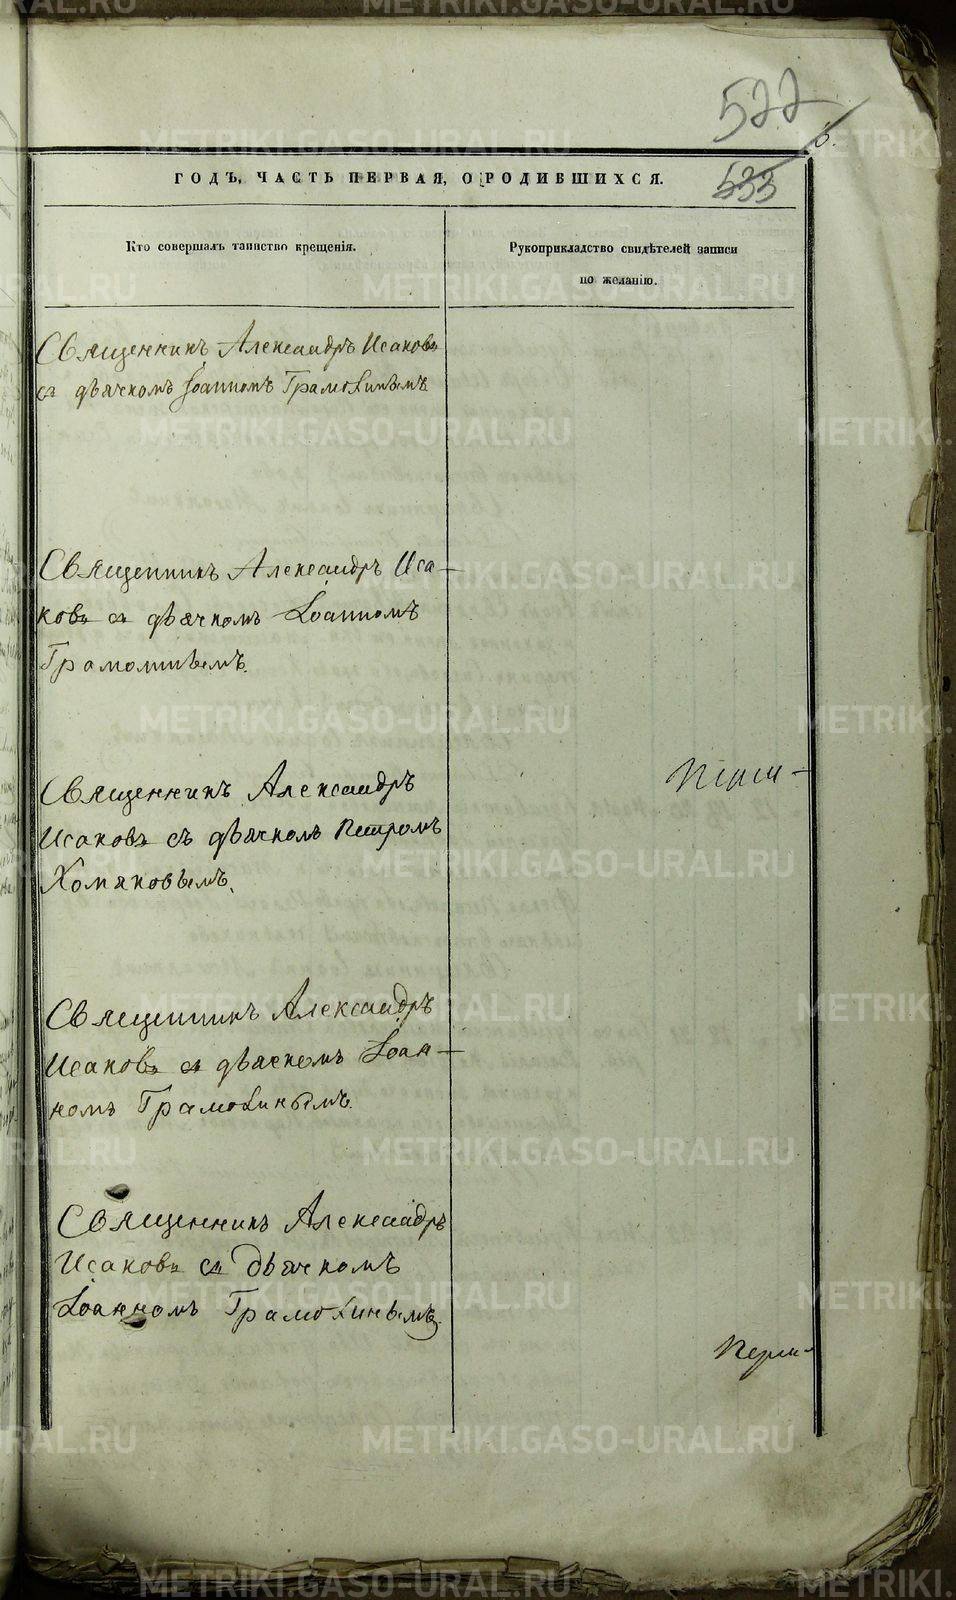 522
533
6.
ГОДЪ, ЧАСТЬ ПЕРВАЯ, О РОДИВШИХСЯ.
Кто совершалъ таинство крещенія.
Рукоприкладство свидѣтелей записи
по желанію.
Священникъ Александръ Исаковъ
съ дьячкомъ Іоанномъ Грамолинымъ
Священникъ Александръ Иса-
ковъ съ дьячкомъ Іоанномъ
Грамолинымъ.
Священникъ Александръ
Исаковъ съ дьячкомъ Петромъ
Хомяковымъ.
Священникъ Александръ
Исаковъ съ дьячкомъ Іоан-
номъ Грамолинымъ.
Священникъ Александръ
Исаковъ съ дьячкомъ
Іоанномъ Грамолинымъ.
METRIKI.GASO-URAL.RU